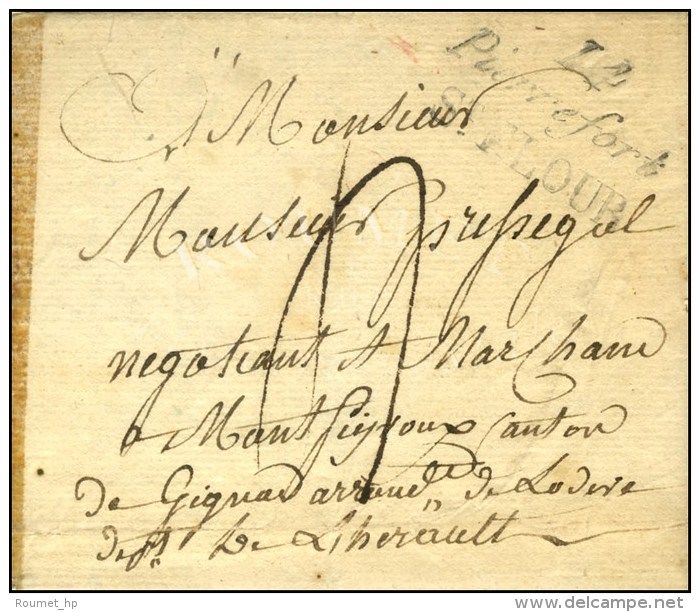 14
Pierrefort
ST. FLOUR
A Monsieur
Monsieur
negotiant et Marchand
a Montpeyroux Canton
de Gignac arrond. de Lodeve
dept. de Lherault
Roumet_hp
delcampe.net